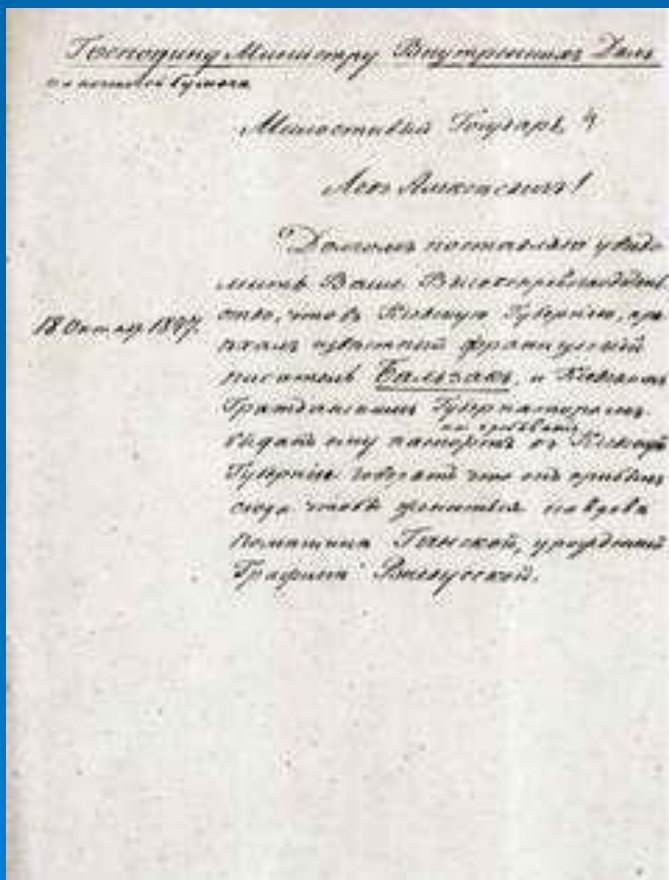 Господину Министру Внутреннихъ Делъ
на почтовой бумаге
Милостивый Государь,
Левъ Алексеевичъ!
Долгомъ поставляю уведо-
мить Ваше Высокопревосходитель
18 Октяб 1847.
ство, что въ Киевскую Губернию, при
ехалъ известный французский
писатель Бальзакъ, и Киевскимъ
Гражданскимъ Губернаторомъ
на
выданъ ему паспортъ въ Киевской
Губернии говорятъ что онъ
сюда чтобы жениться на вдове
помещика Ганской, урожденной
Графини Ржевусской.